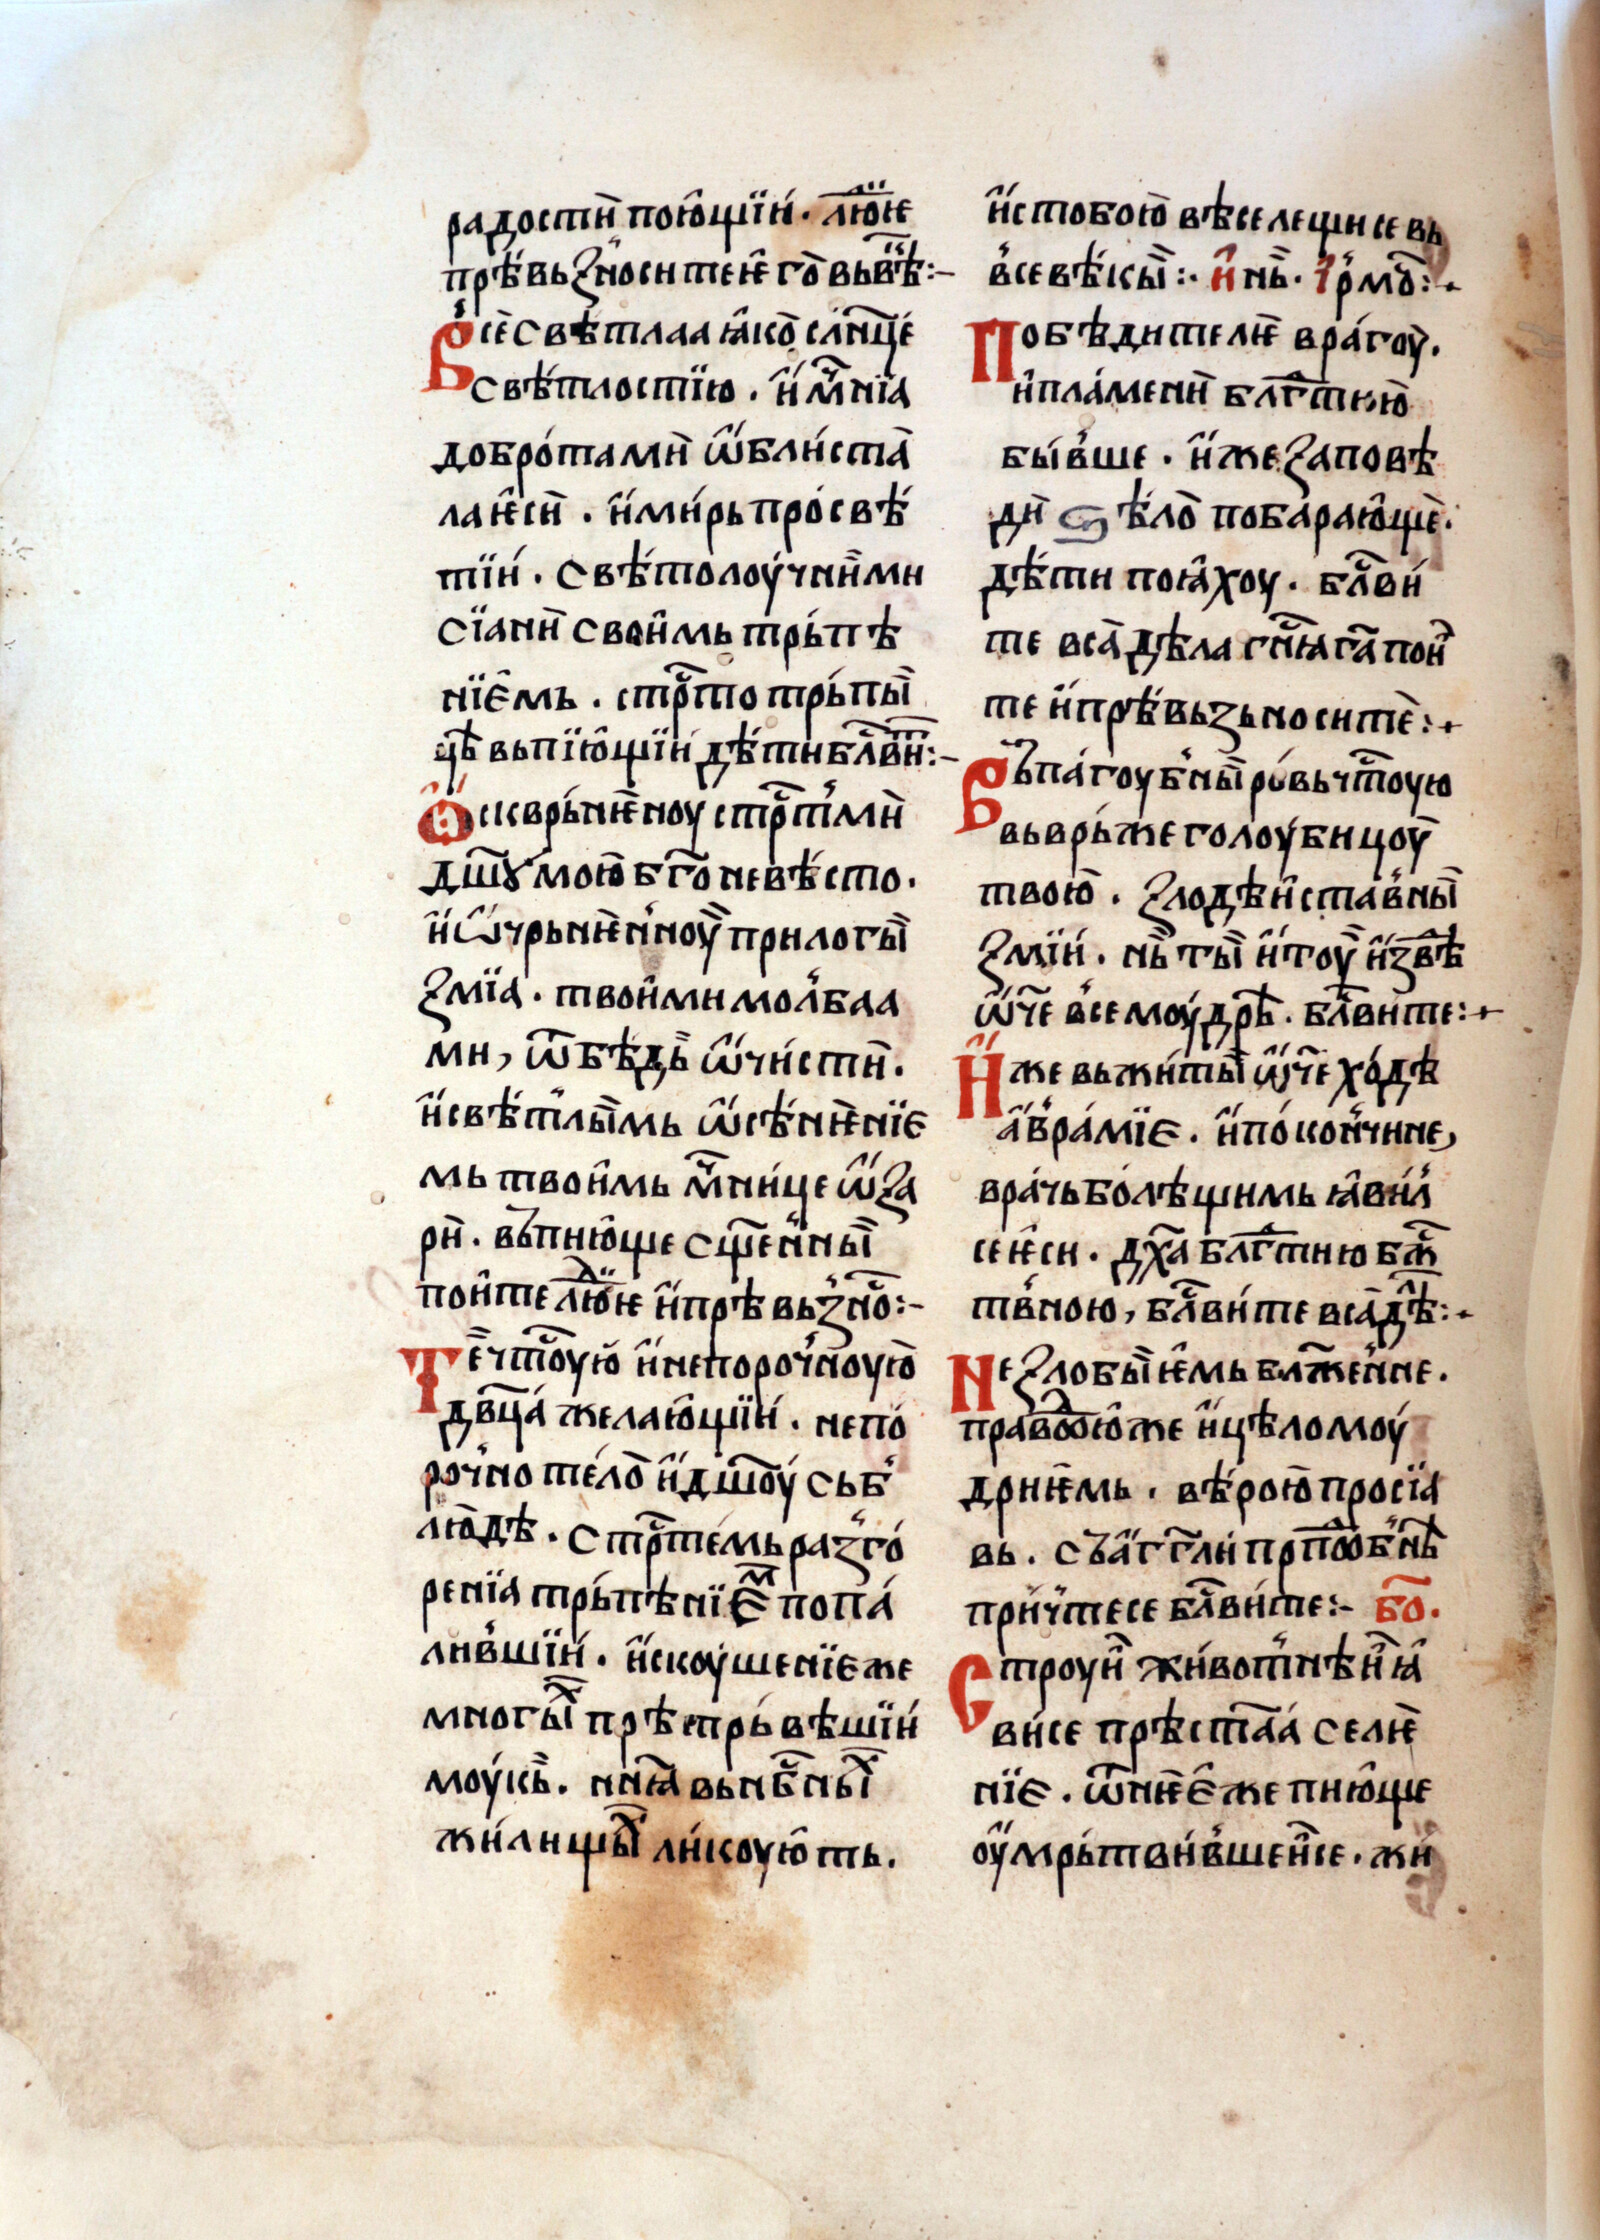 радостѝ пою̂щїи́. лю̅їѥ
прѣ́вьꙁно́ситеѥ̂го̀ вьв̅ѣ:-
В̾сѐсвѣтлаа ꙗ̂кѡ̀ сл̅нцѐ
свѣ́тлостїю. и҆́м̅чнїа
добро́тамѝ ѡ҆́бли́ста̀
лаѥ̂сѝ. и҆́ми́рьпро́свѣ́
тїи́. свѣ́толоу́чни̏ми
сїанѝ свои̂мь трь́пѣ
нїе̂мь. стр̅то трь́пы̏
цѣ̀ вьпїю̂щїи́ дѣ́тибл̅ви̅т:-
Ѡ҆скврь́нѥ̏ноу стр̅т̾мѝ
дш̅ꙋ̀ моѡ̀ бг̅оневѣ́сто.
и҆́ѡ҆́чрьнѥ̏н̾ноу̏ прилогы̏
ꙁмїа. твои̂ми мо́л̾баа
ми, ѿбѣ́дь̏ ѡ҆́чи́стѝ.
и҆́свѣ́т̾лы̏мь ѡ҆́сѣ́нѥ̏нїе
мь твои̂мь м̅чни́це ѡ҆́ꙁа
рѝ. вь̾пию̂ще сщ̅ен̾ны̏
пои̂те лю̅дїѥ и҆́прѣвьꙁ̾но̅с:-
Тѐчт̅оую̀ и҆́непороч̾ноую̀
дв̅ца́ желаю̂щїи́. непо́
роч̾но те́лѡ̀ и҆́дш̅оу́ сьб̾
лю̀дѣ. стр̅те́мьраꙁ̾го́
ренїа трь́пѣнїе̅м попа́
лив̾шїи́. и҆́скоу́шенїеже
многы̅х прѣтрь́вѣшїи́
моу́кь̏. нн̅ꙗ вьнб̅ны̅х
жи́лищы̅х ли́коую̂ть.
и҆́стобою̀ вѣселещисевь
в̾севѣ́кы̏:· И҆ нь̏. І҆р̾мо̅с:·
Побѣдителѥ̀ вра́гоу̀.
и҆пла́менѝ блг̅тию̀
бы́в̾ше. и҆́жеꙁаповѣ
дѝ ѕѣ́лѡ̀ побараю̂щѐ.
дѣ́ти поꙗ̂хоу. бл̅ви́
те вса̀дѣла гн̅ꙗ га̅ пои̏
те и҆́прѣ́вьꙁьноситѐ:·
Вь̾па́гоуб̾ны̏ ро́вьчт̅оую
вьврь́жеголоу́бицоу̀
твою̀. ꙁлодѣи̂став̾ны̏
ꙁмїи́. нь̏ ты̏ и҆́тоу̏ и҆́ꙁв̅ѣ
ѡ҆́ч̅е в̾семоу́дрѣ̏. бл̅вите:·
И҆́жевьжи́ты̏ ѡ҆́ч̅е хо́дѣ
а҆́в̾ра́мїе. и҆́по́кон̾чине,
вра́чьбо́лѣщимь ꙗ̂ви́л̾
сеѥ̂си. дх̅а блг̅тию бж̅
тв̾ною, бл̅ви́те вса̀дѣ̅:·
Неꙁлобы̏ѥ̂мь бла̅жен̾не.
правд̅ою̂же и҆́цѣломоу́
дриѥ̂мь. вѣ́рою̀ просїа
вь. сьа҆́гг̅ли́ прп̅доб̾нѣ̏
при́ч̾тесе бл̅ви́те:- бо̅.
Строуи̏ живот̾нѣи̏ ꙗ̂
ви́се прѣста̅а́ селѥ̀
нїе. ѿнѥ̏е̂же пию̂ще
оу҆́мрь́тви́в̾шеи̏се. жи̏